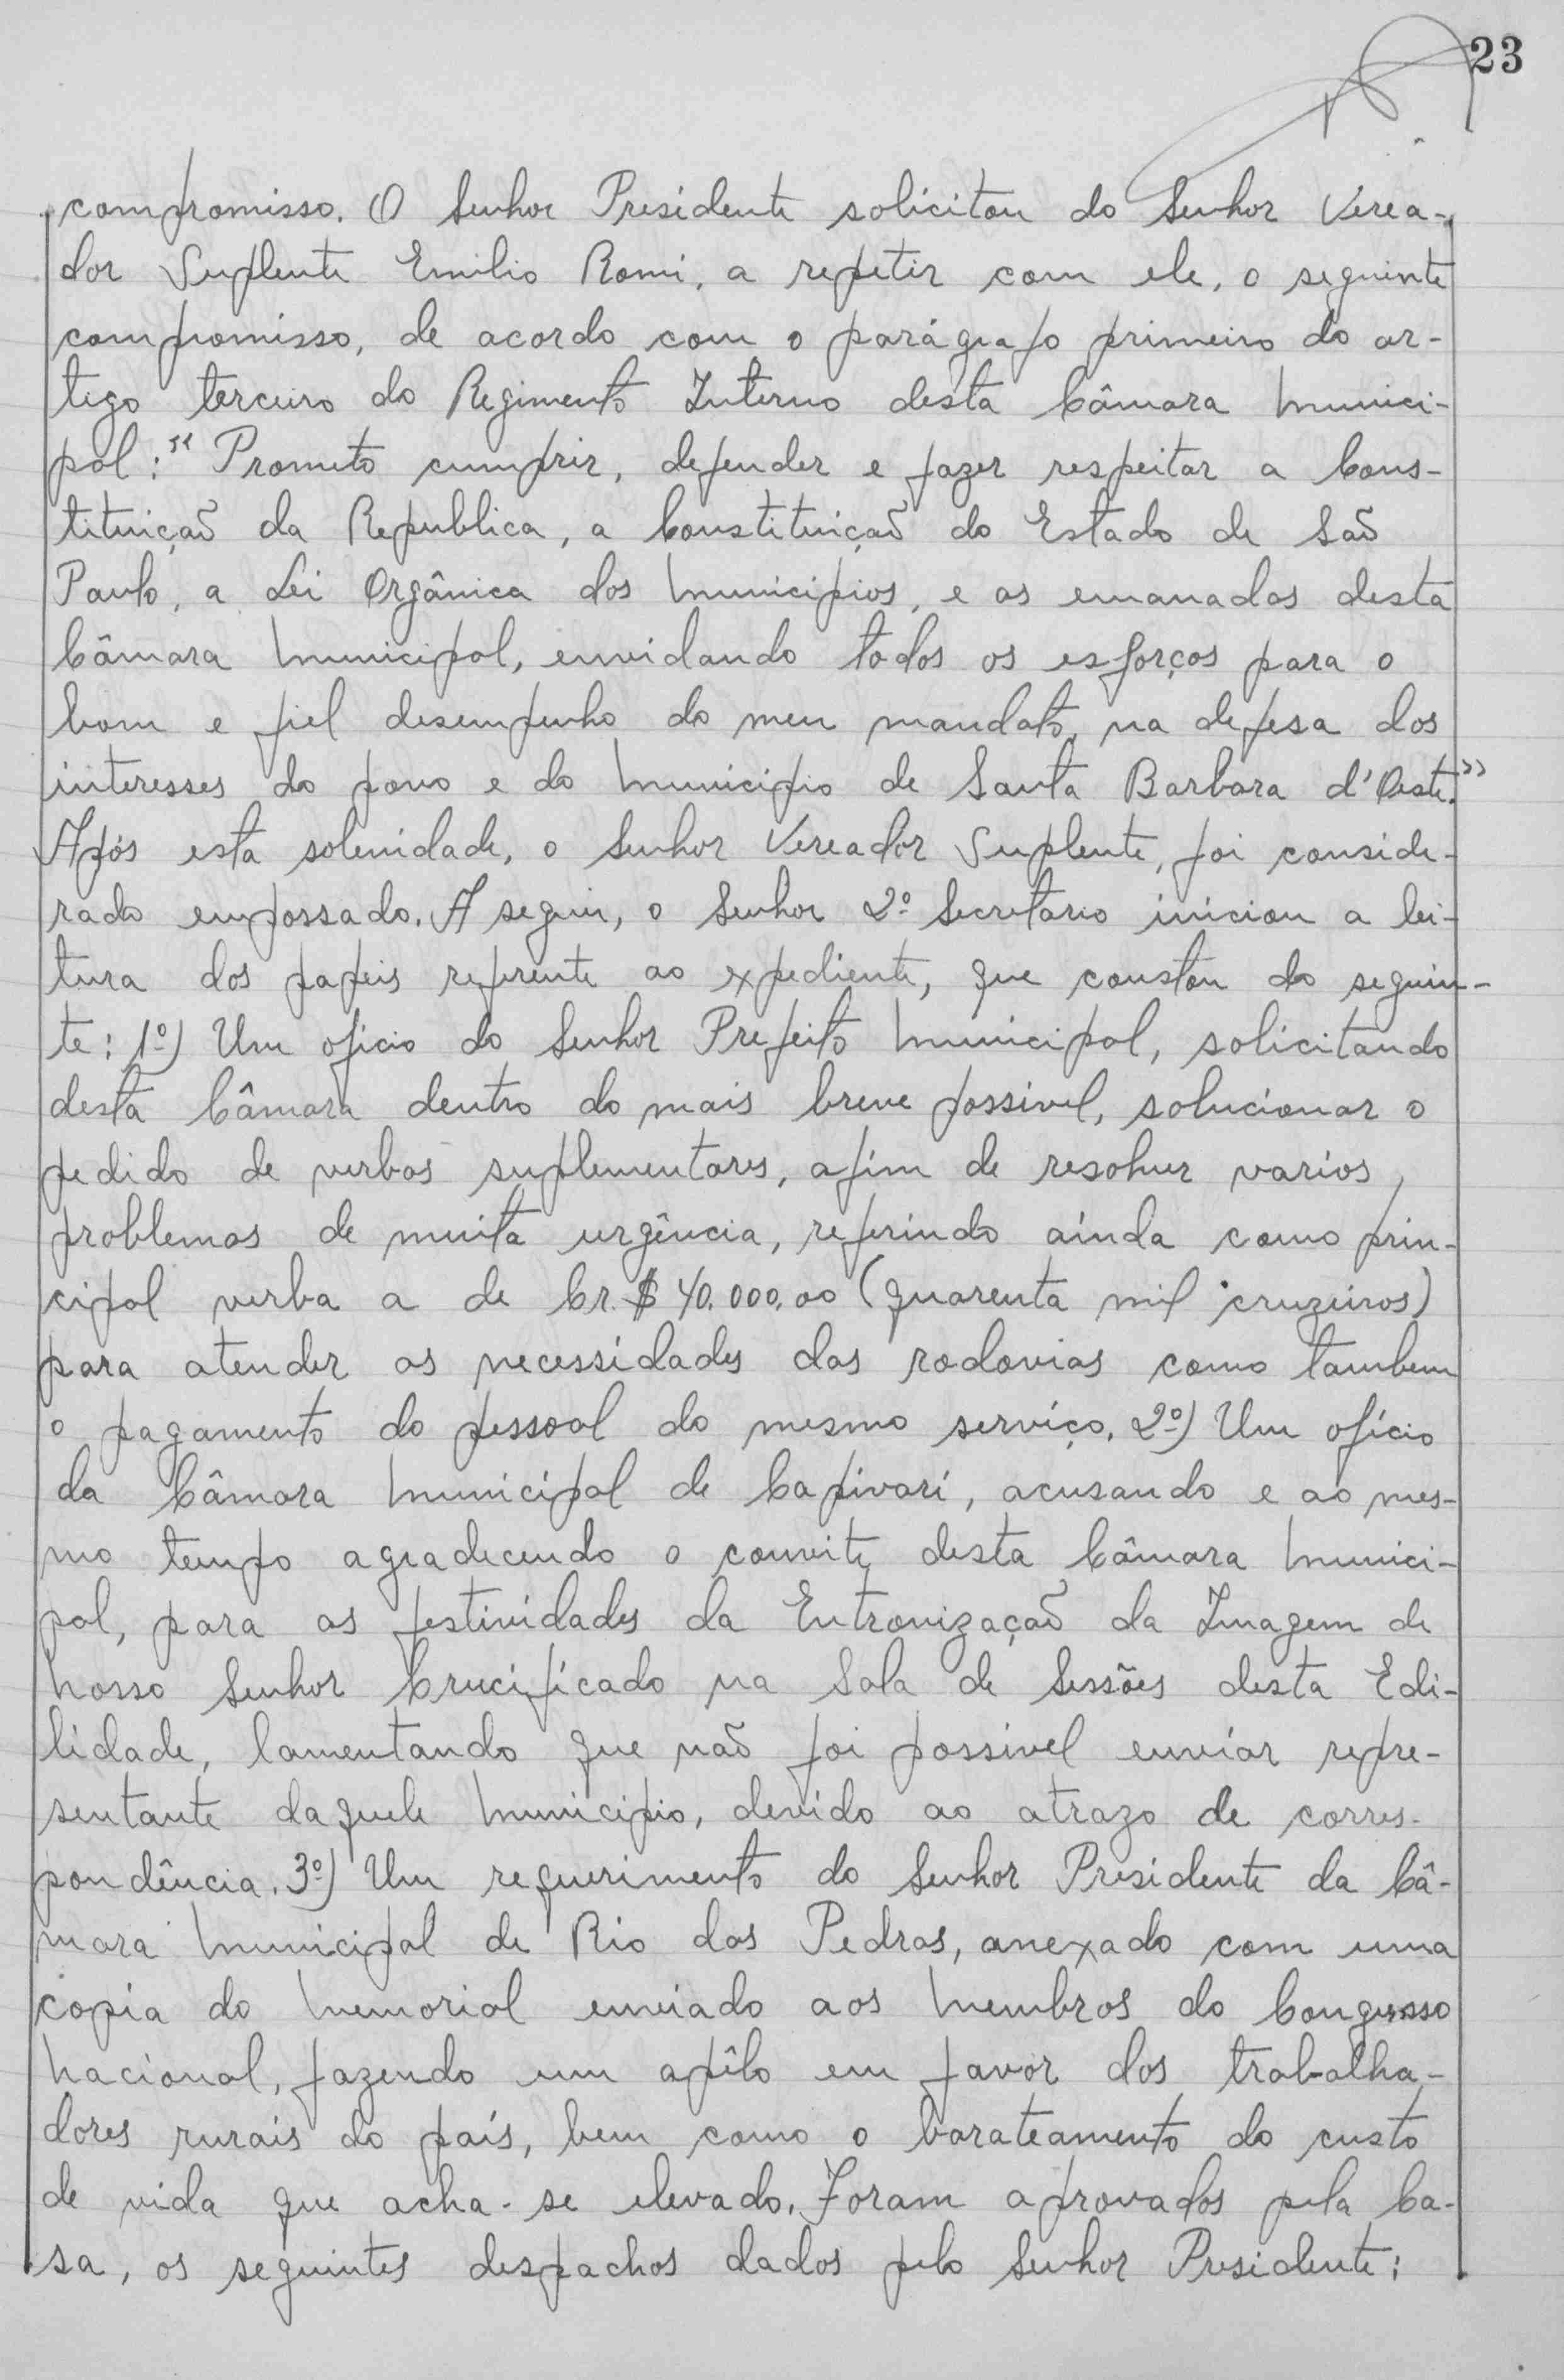 23
compromisso. O Senhor Presidente solicitou do Senhor Verea-
dor Suplente Emilio Romi, a repetir com ele, o seguinte
compromisso, de acordo com o parágrafo primeiro do ar-
tigo terceiro do Regimento Interno desta Câmara Munici-
pal: "Prometo cumprir, defender e fazer respeitar a Cons-
tituição da Republica, a Constituição do Estado de São
Paulo, a Lei Orgânica dos Municipios, e as emanadas desta
Câmara Municipal, envidando todos os esforços para o
bom e fiel desempenho do meu mandato, na defesa dos
interesses do povo e do Municipio de Santa Barbara d'Oeste."
Após esta solenidade, o Senhor Vereador Suplente, foi conside-
rado empossado. A seguir, o Senhor 2º Secretario iniciou a lei-
tura dos papeis referente ao expediente, que constou do seguin-
te: 1º) Um oficio do Senhor Prefeito Municipal, solicitando
desta Câmara dentro do mais breve possivel, solucionar o
pedido de verbas suplementares, afim de resolver varios
problemas de muita urgência, referindo ainda como prin-
cipal verba a de Cr.$ 40.000,00 (quarenta mil cruzeiros)
para atender as necessidades das rodovias como tambem
o pagamento do pessoal do mesmo serviço. 2º) Um ofício
da Câmara Municipal de Capivari, acusando e ao mes-
mo tempo agradecendo o convite desta Câmara Munici-
pal, para as festividades da Entronização da Imagem de
Nosso Senhor Crucificado na Sala de Sessões desta Edi-
lidade, lamentando que não foi possivel enviar repre-
sentante daquele Municipio, devido ao atrazo de corres-
pondência. 3º) Um requerimento do Senhor Presidente da Câ-
mara Municipal de Rio das Pedras, anexado com uma
copia do Memorial enviado aos Membros do Congresso
Nacional, fazendo um apêlo em favor dos trabalha-
dores rurais do país, bem como o barateamento do custo
de vida que acha-se elevado. Foram aprovados pela Ca-
sa, os seguintes despachos dados pelo Senhor Presidente: